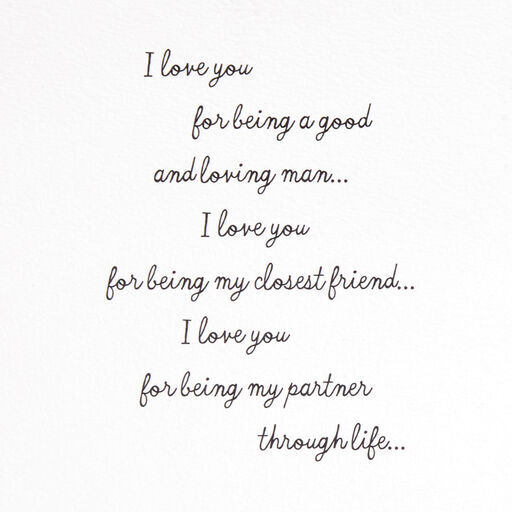 I love you
for being a good
and loving man...
I love you
for being my closest friend...
I love you
for being my partner
through life...